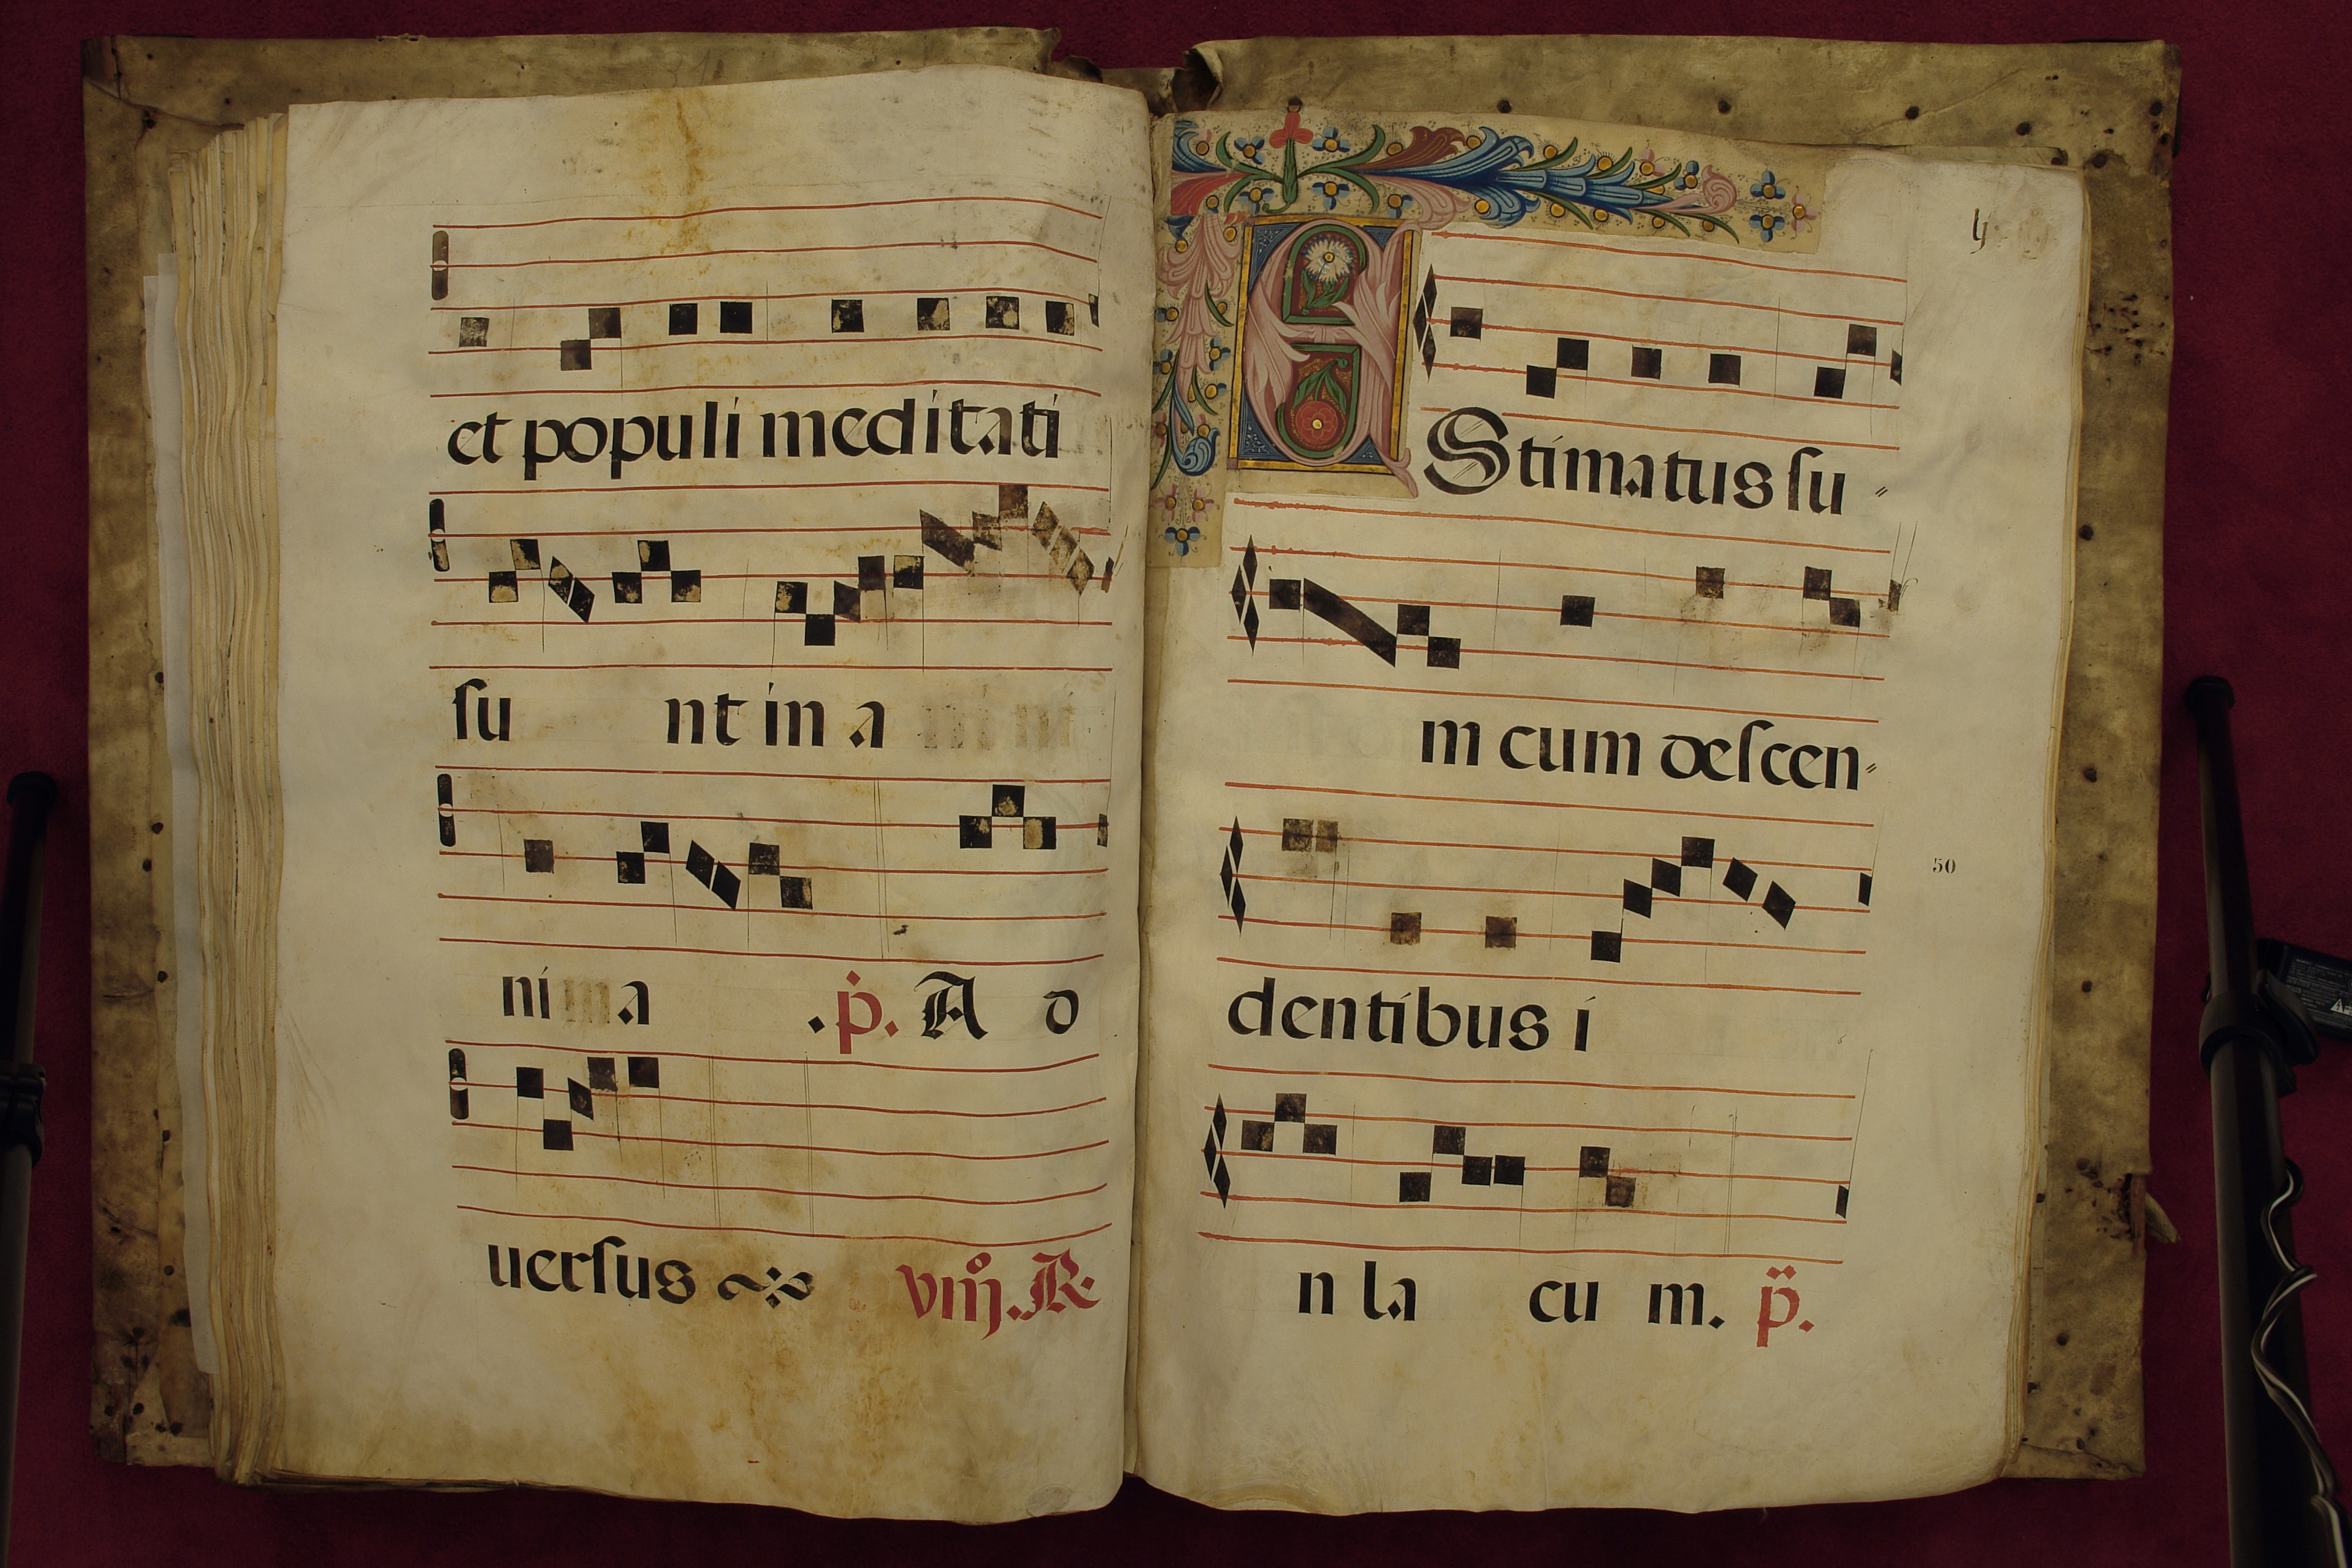 et populi meditati
su nt in a
ni a .p. A d
uersus viiij. R.
lj
EStimatus su
m cum descen
50
dentibus i
n la cu m. p.